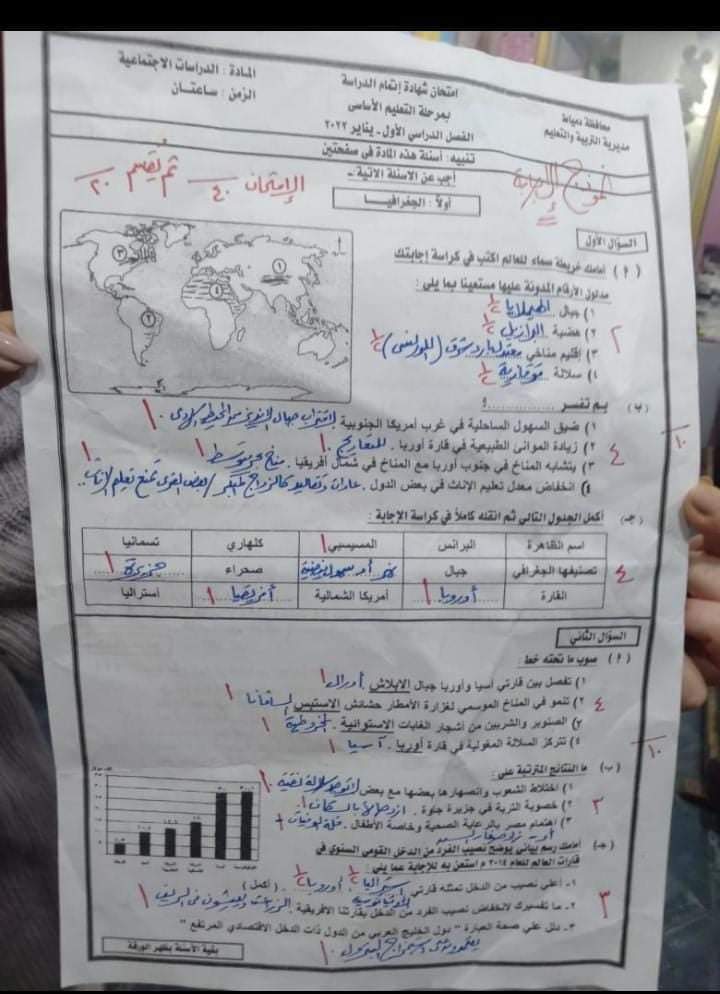 محافظة دمياط
مديرية التربية والتعليم
امتحان شهادة إتمام الدراسة
بمرحلة التعليم الأساسي
الفصل الدراسي الأول - يناير ٢٠٢٢
المادة : الدراسات الاجتماعية
الزمن : ساعتان
تنبيه : أسئلة هذه المادة في صفحتين
نموذج الإجابة
أجب عن الأسئلة الآتية :-
الإمتحان ٤٠ ثم يقسم ٢٠
أولاً : الجغرافيا
السؤال الأول
( أ ) أمامك خريطة صماء للعالم اكتب في كراسة إجابتك
مدلول الأرقام المدونة عليها مستعينا بما يلي :
١) جبال الهيمالايا ½
٢) هضبة البرازيل ½
٣) إقليم مناخي معتدل بارد شرق (اللورنسي) ½
٤) سلالة قوقازية ½
٢
١
٢
٣
٤
(ب) بم تفسر ............؟
١) ضيق السهول الساحلية في غرب أمريكا الجنوبية لاقتراب جبال الإنديز من المحيط الهادي . ١
٢) زيادة الموانئ الطبيعية في قارة أوربا . للتعاريج . ١
٣) يتشابه المناخ في جنوب أوربا مع المناخ في شمال أفريقيا . مناخ بحر متوسط ١
٤) انخفاض معدل تعليم الإناث في بعض الدول . عادات وتقاليد كالزواج المبكر / بعض القرى تمنع تعليم الإناث .. ١
٤
١٠
(جـ) أكمل الجدول التالي ثم انقله كاملاً في كراسة الإجابة :
اسم الظاهرة البرانس المسيسبي كلهاري تسمانيا
تصنيفها الجغرافي جبال نهر أو سهول فيضية ١ صحراء جزيرة ١
القارة أوروبا ١ أمريكا الشمالية أفريقيا ١ استراليا
٤
السؤال الثاني
( أ ) صوب ما تحته خط :
١) تفصل بين قارتي آسيا وأوربا جبال الابلاش أورال ١
٢) تنمو في المناخ الموسمي لغزارة الأمطار حشائش الاستبس السافانا ١
٣) الصنوبر والشربين من أشجار الغابات الاستوائية . المخروطية ١
٤) تتركز السلالة المغولية في قارة أوربا . آسيا ١
٤
١٠
(ب) ما النتائج المترتبة على :
١) اختلاط الشعوب وانصهارها بعضها مع بعض لا توجد سلالة نقية . ١
٢) خصوبة التربة في جزيرة جاوة . ازدحامها بالسكان . ١
٣) إهتمام مصر بالرعاية الصحية وخاصة الأطفال . قلة الوفيات ١
٣
(جـ) أمامك رسم بياني يوضح نصيب الفرد من الدخل القومي السنوي في
قارات العالم للعام ٢٠١٤ م استعن به للإجابة عما يلي :
١- أعلى نصيب من الدخل تمثله قارتي استراليا ½ ، أوروبا ½ . ( أكمل )
٢- ما تفسيرك لانخفاض نصيب الفرد من الدخل بقارتنا الأفريقية ١
٣- دلل على صحة العبارة " دول الخليج العربي من الدول ذات الدخل الاقتصادي المرتفع "
٣
بقية الأسئلة بظهر الورقة